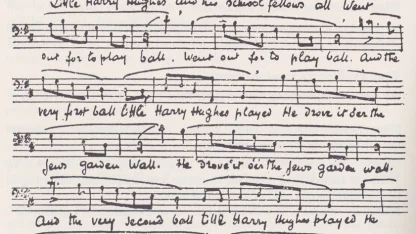 Little Harry Hughes and his schoolfellows all went
out for to play ball. Went out for to play ball. And the
very first ball little Harry Hughes played He drove it o'er the
jews garden wall. He drove it o'er the jews garden wall.
And the very second ball little Harry Hughes played He